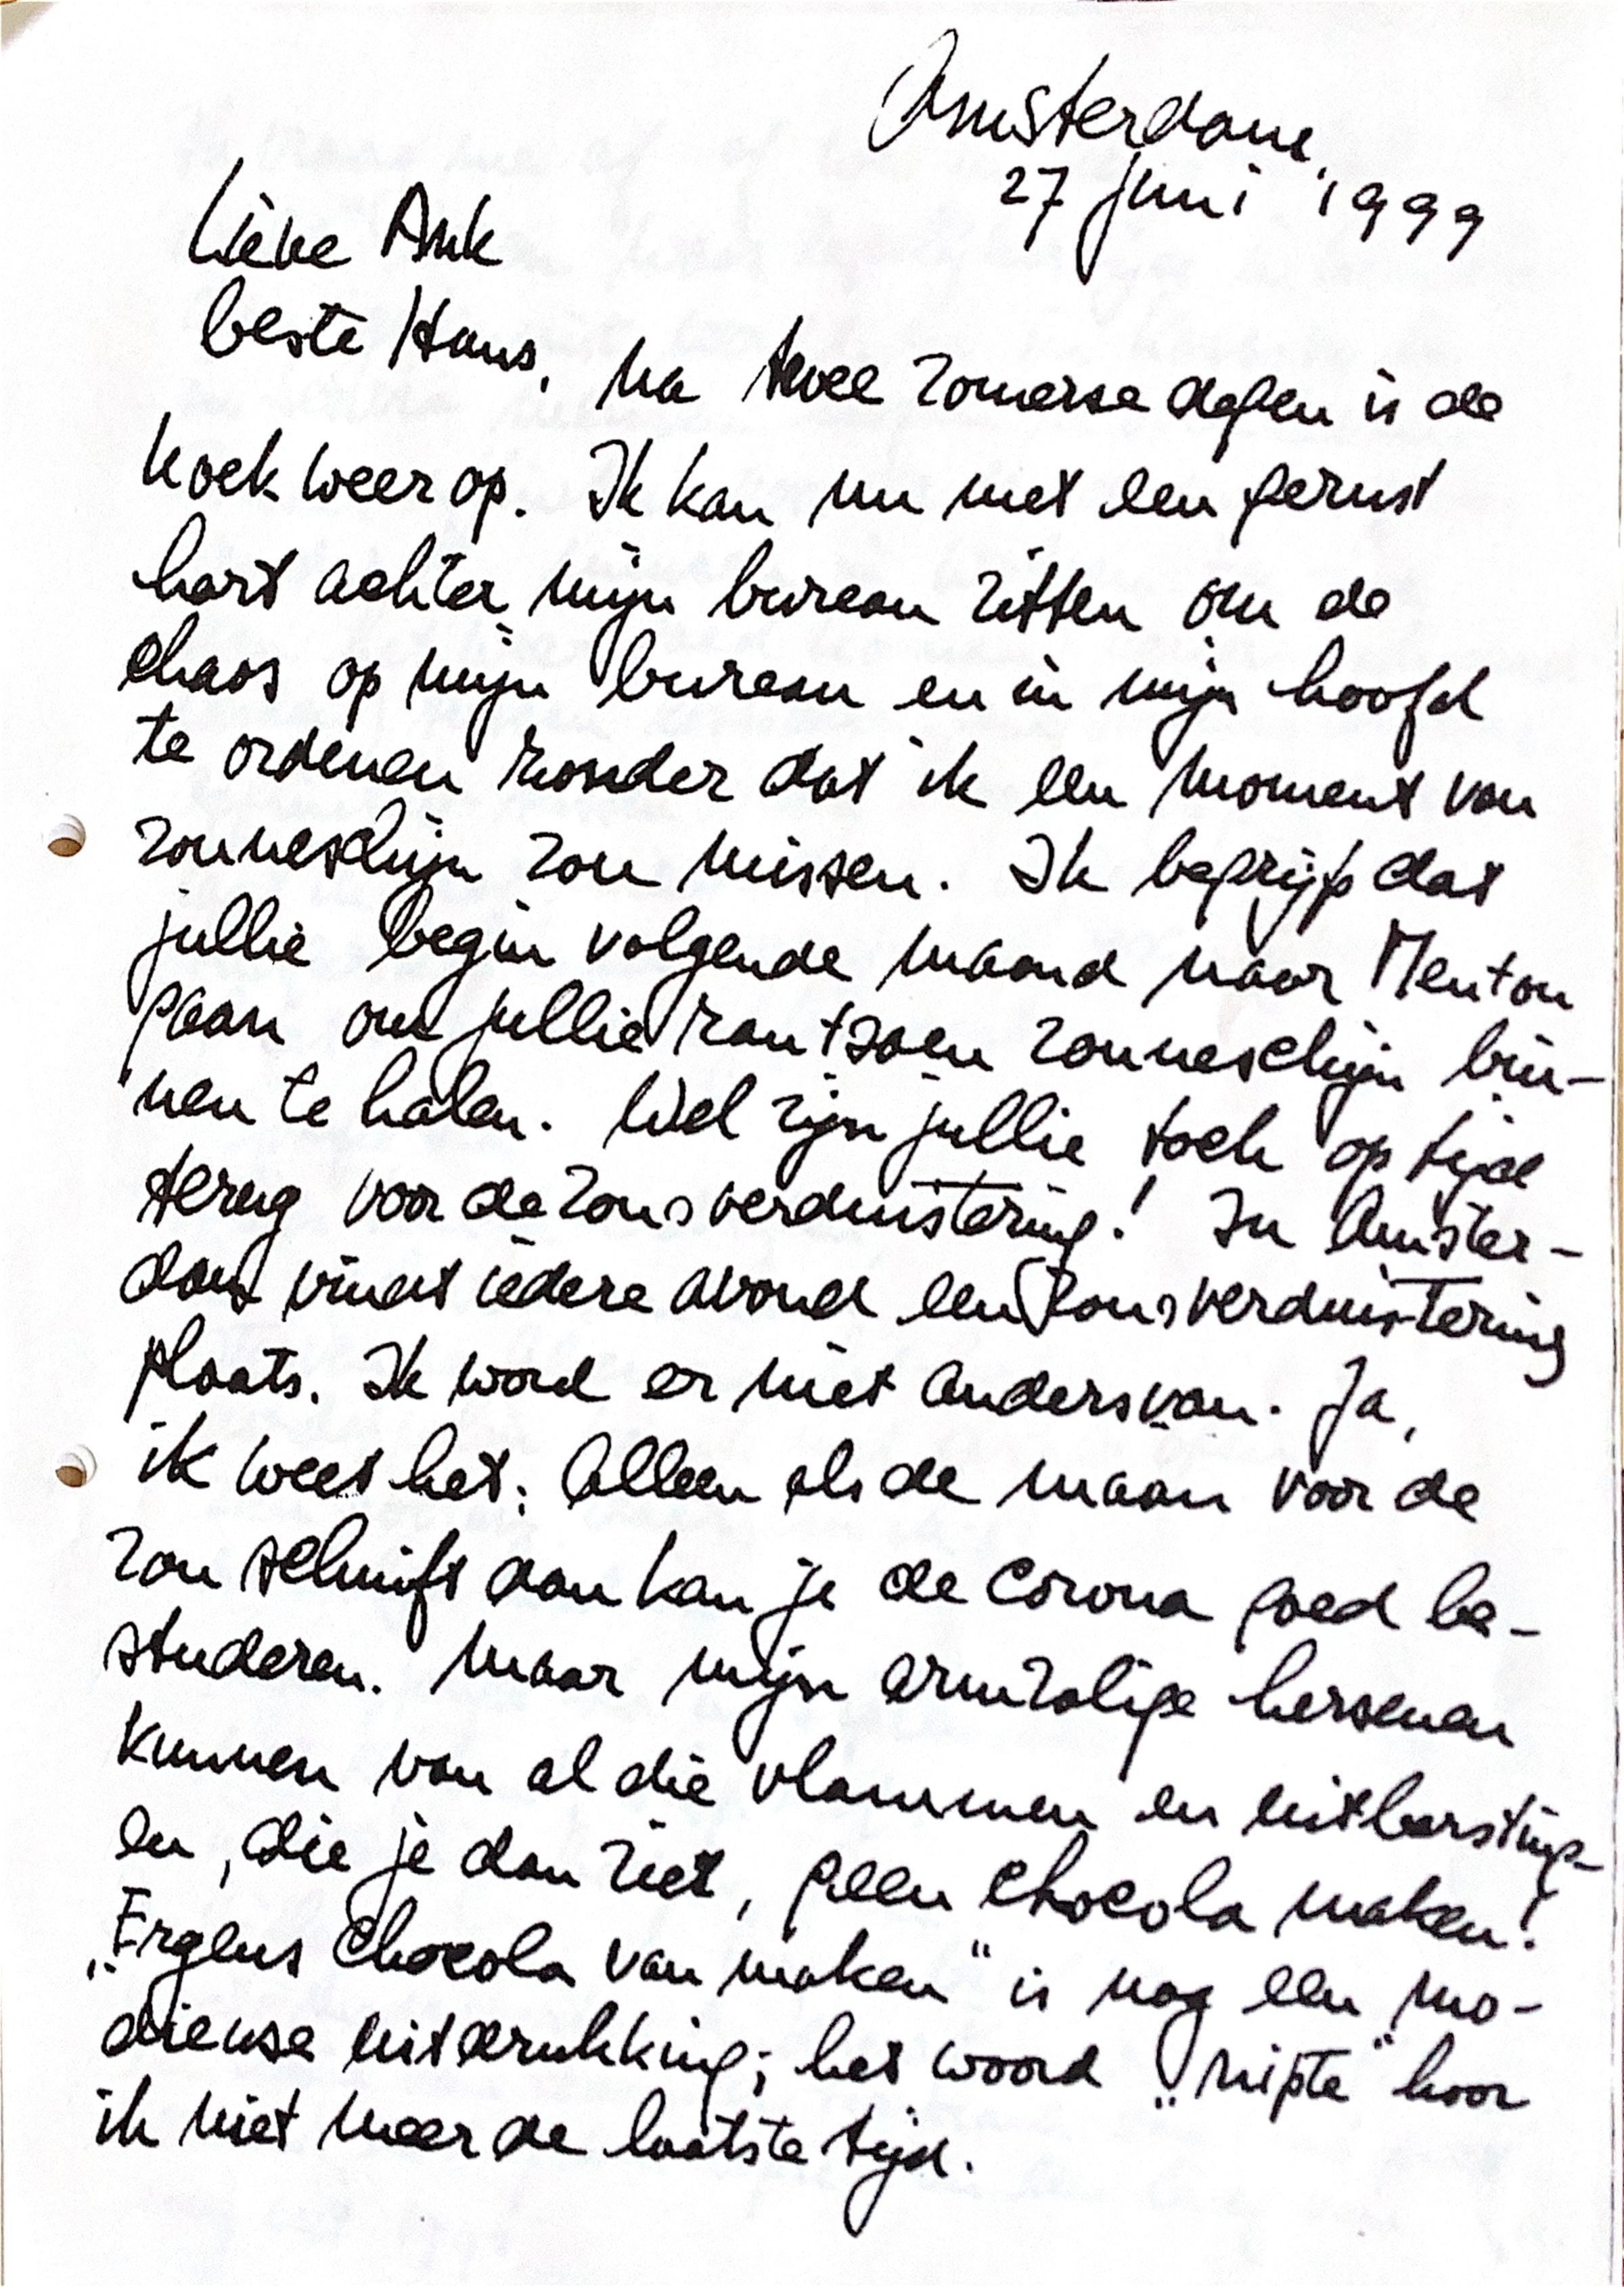 Amsterdam,
27 juni 1999
Lieve Ank
beste Hans, na twee zomerse dagen is de
koek weer op. Ik kan nu met een gerust
hart achter mijn bureau zitten om de
chaos op mijn bureau en in mijn hoofd
te ordenen zonder dat ik een moment van
zonneschijn zou missen. Ik begrijp dat
jullie begin volgende maand naar Menton
gaan om jullie rantsoen zonneschijn bin-
nen te halen. Wel zijn jullie toch op tijd
terug voor de zonsverduistering! In Amster-
dam vindt iedere avond een zonsverduistering
plaats. Ik word er niet anders van. Ja,
ik weet het: Alleen als de maan voor de
zon schuift dan kan je de corona goed be-
studeren. Maar mijn armzalige hersenen
kunnen van al die vlammen en uitbarsting-
en, die je dan ziet, geen chocola maken!
„Ergens chocola van maken" is nog een mo-
dieuse uitdrukking; het woord „nipte" hoor
ik niet meer de laatste tijd.